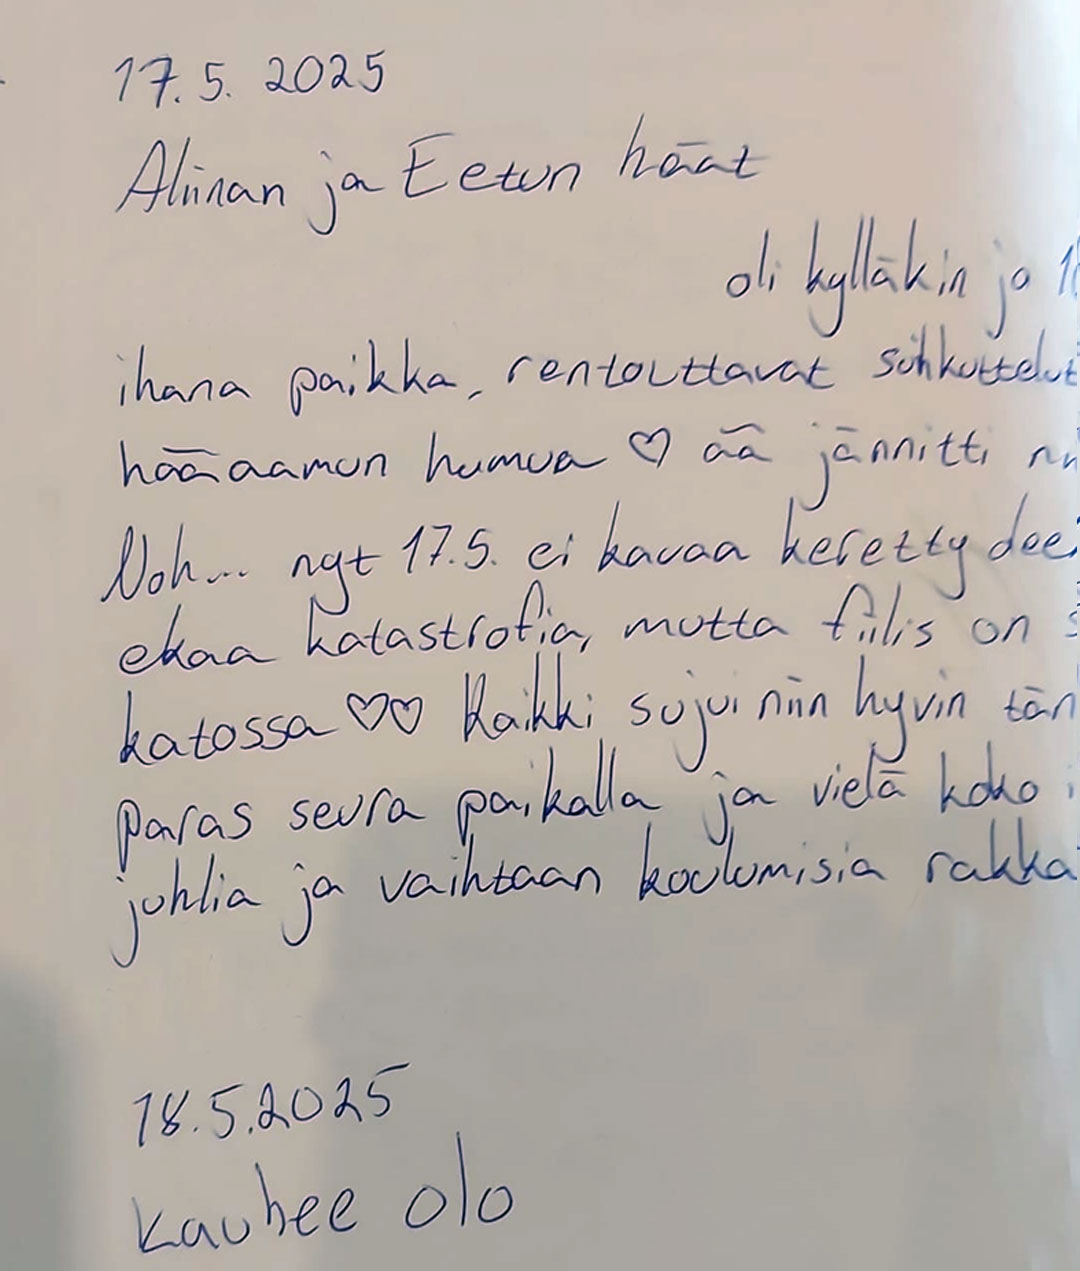 17.5. 2025
Aliinan ja Eetun häät
oli kylläkin jo
ihana paikka, rentouttavat suihkuttelut
hääaamun humua ♡ ää jännitti
Noh... nyt 17.5. ei kauaa keretty
ekaa katastrofia, mutta fiilis on
katossa ♡♡ Kaikki sujui niin hyvin
paras seura paikalla ja vielä koko
juhlia ja vaihtaan kuulumisia
18.5.2025
Kauhee olo